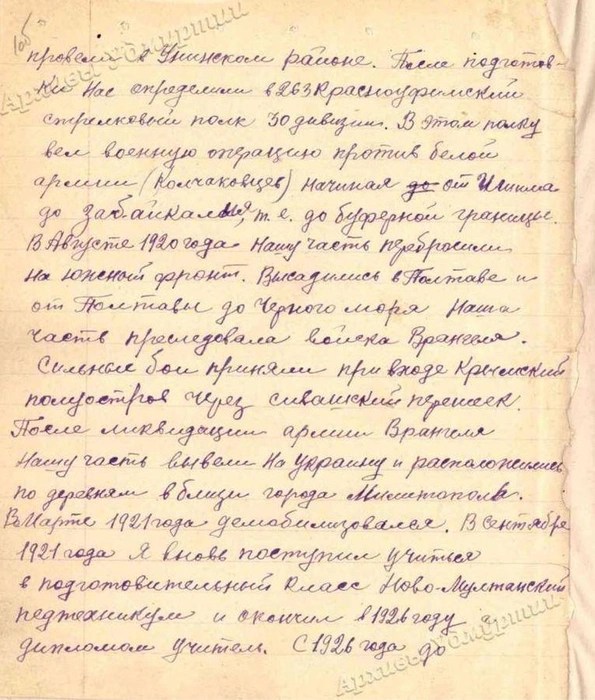 1об
Архивы Удмуртии
провели в Унинском районе. После подготов-
ки нас определили в 263 Красноуфимский
стрелковый полк 30 дивизии. В этом полку
вел военную операцию против белой
армии (Колчаковцев) начиная до от Ишима
до Забайкалья, т.е. до буферной границы.
В Августе 1920 года нашу часть перебросили
на южный фронт. Высадились в Полтаве и
от Полтавы до Черного моря наша
часть преследовала войска Врангеля.
Сильные бои приняли при входе Крымский
полуостров через сивашский перешеек.
После ликвидации армии Врангеля
нашу часть вывели на Украину и расположились
по деревням в близи города Милитополя.
В Марте 1921 года демобилизовался. В Сентябре
1921 года я вновь поступил учиться
в подготовительный класс Ново-Мултанский
педтехникум и окончил в 1926 году с
дипломом учитель. С 1926 года до
Архивы Удмуртии